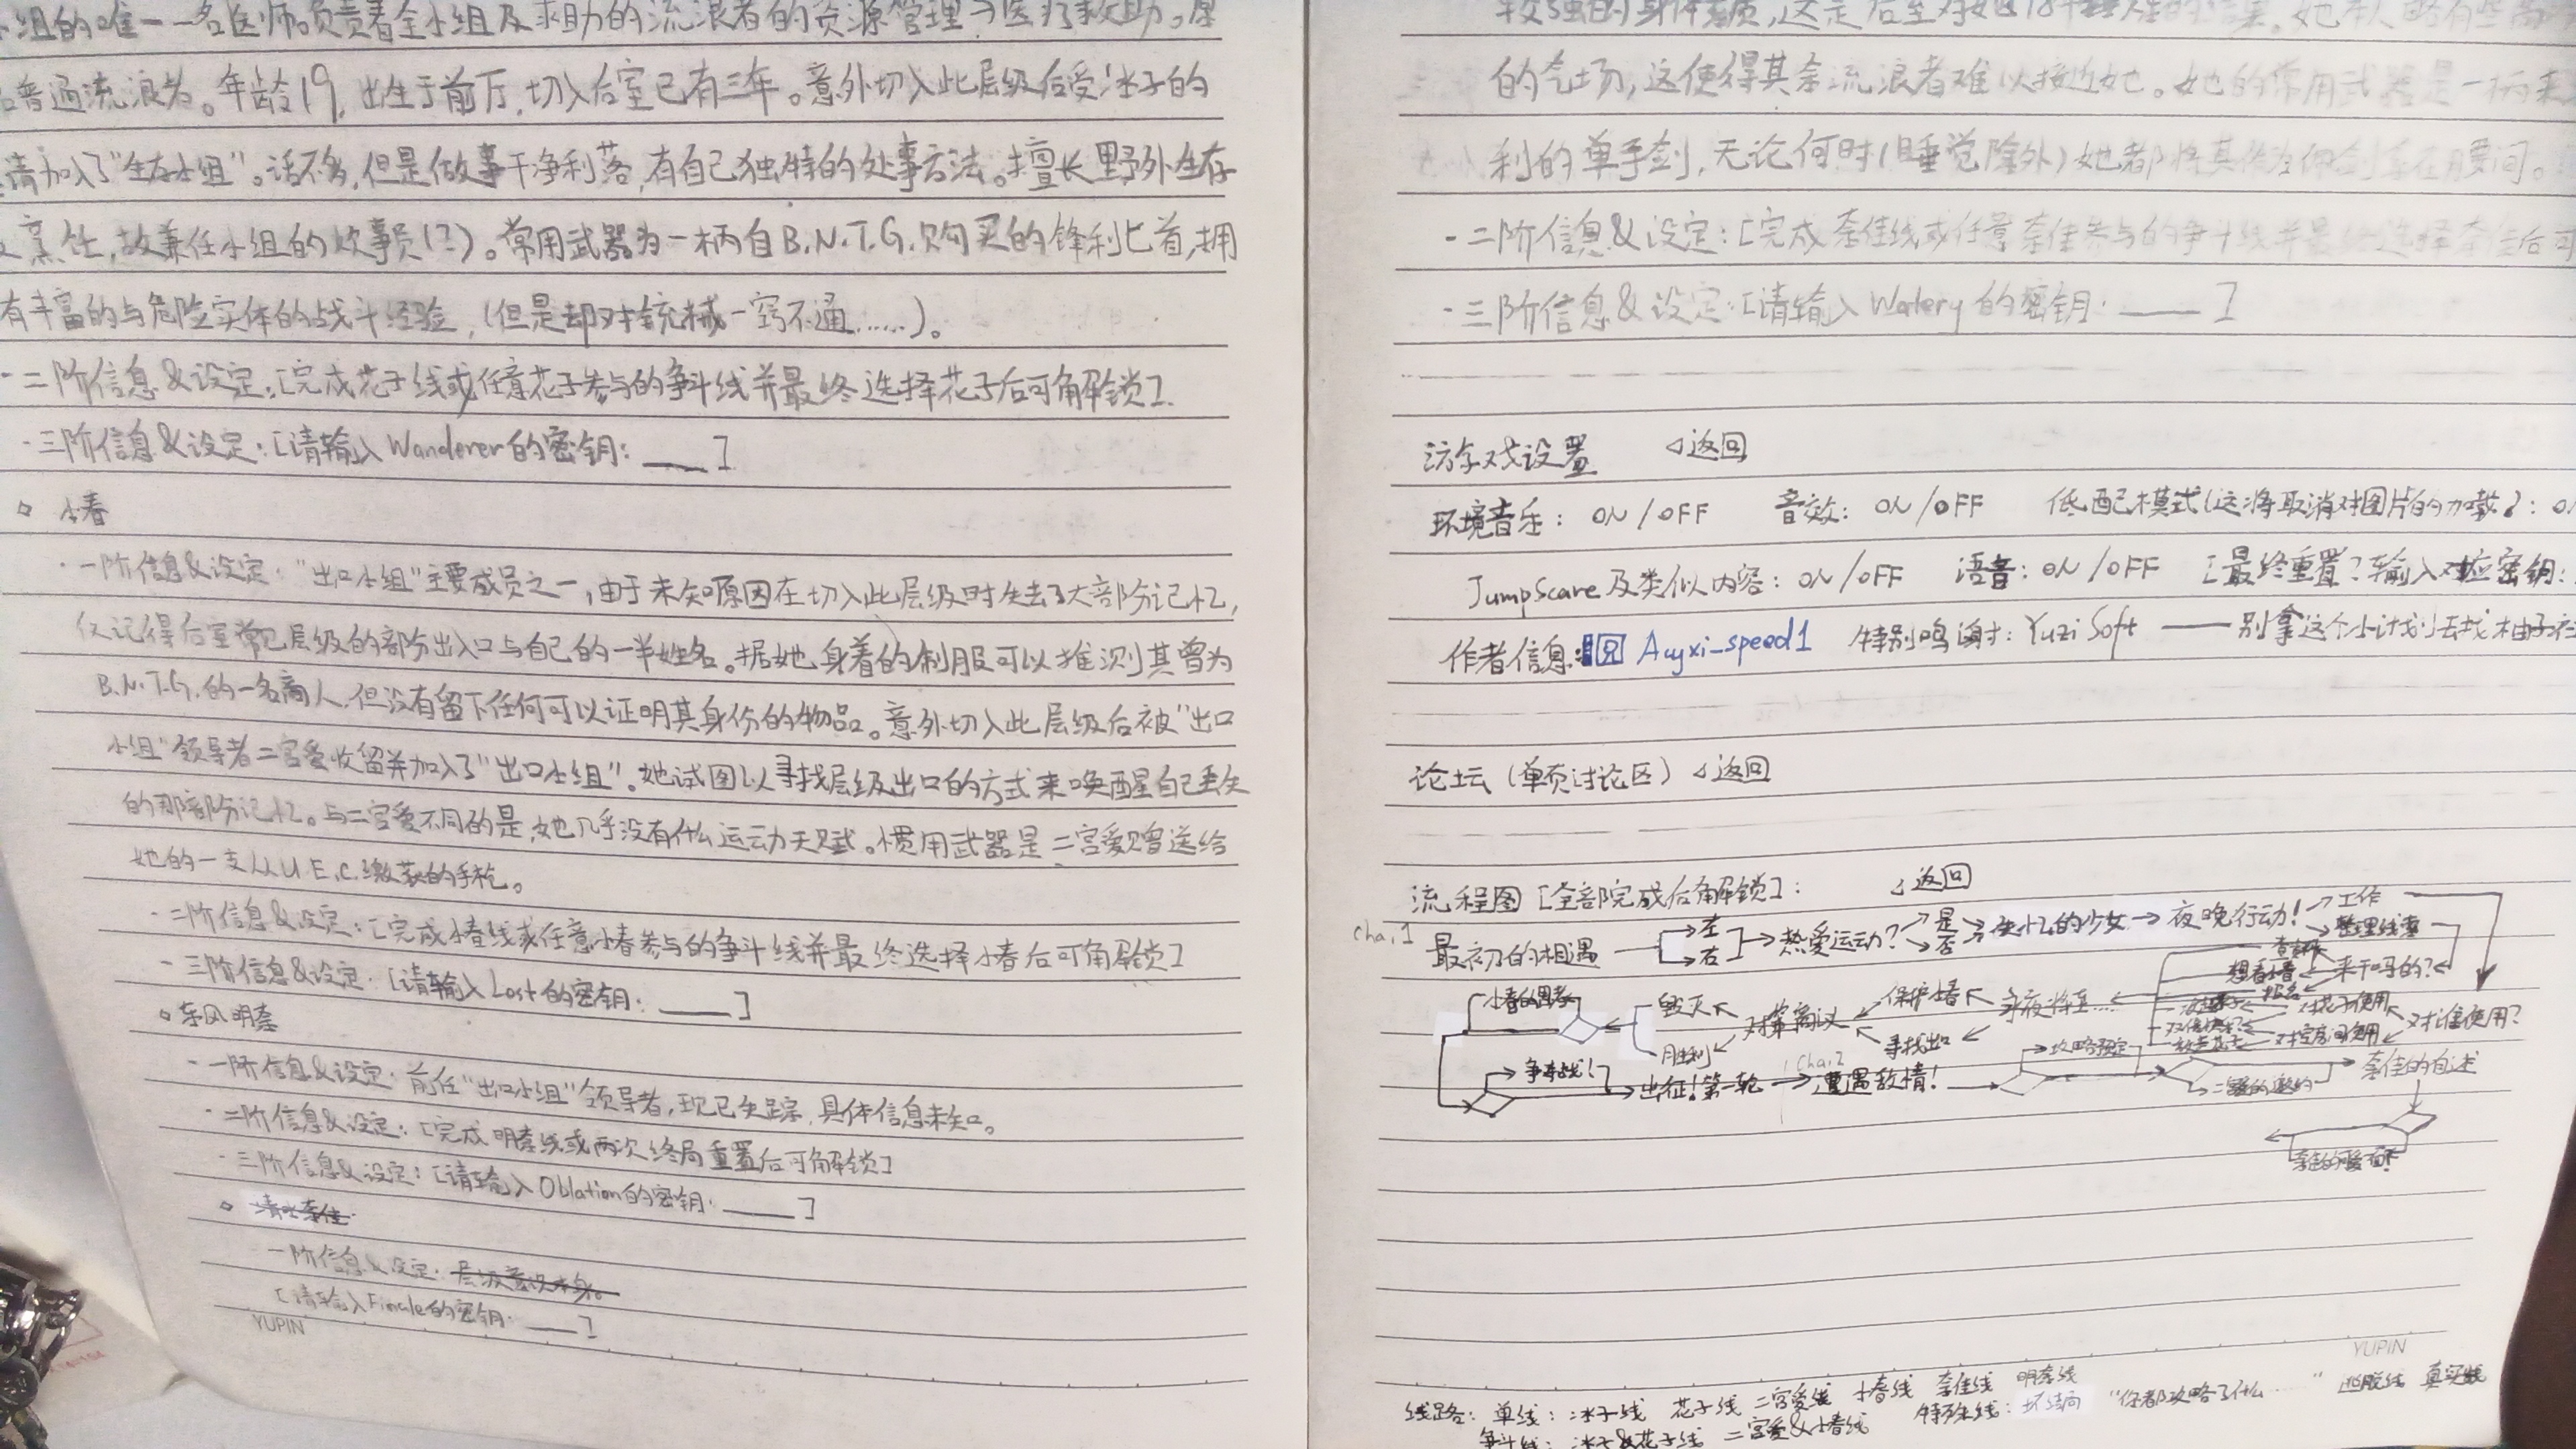 小组的唯一一名医师。负责着全小组及求助的流浪者的资源管理与医疗救助。原
普通流浪者。年龄19，出生于前厅，切入后室已有三年。意外切入此层级后受冰子的
请加入了“生存小组”。话不多，但是做事干净利落，有自己独特的处事方法。擅长野外生存
烹饪，故兼任小组的炊事员(?)。常用武器为一柄自B.N.T.G.购买的锋利匕首，拥
有丰富的与危险实体的战斗经验，(但是却对铳械一窍不通……)。
·二阶信息&设定：[完成花子线或任意花子参与的争斗线并最终选择花子后可解锁].
·三阶信息&设定：[请输入Wanderer的密钥：____]
◇ 小春
·一阶信息&设定：“出口小组”主要成员之一，由于未知原因在切入此层级时失去了大部分记忆，
仅记得后室常见层级的部分出入口与自己的一半姓名。据她身着的制服可以推测其曾为
B.N.T.G.的一名商人，但没有留下任何可以证明其身份的物品。意外切入此层级后被“出口
小组”领导者二宫爱收留并加入了“出口小组”。她试图以寻找层级出口的方式来唤醒自己丢失
的那部分记忆。与二宫爱不同的是，她几乎没有什么运动天赋。惯用武器是二宫爱赠送给
她的一支从U.E.C.缴获的手枪。
·二阶信息&设定：[完成小春线或任意小春参与的争斗线并最终选择小春后可解锁]
·三阶信息&设定：[请输入Lost的密钥：____]
◇ 东风明柰
·一阶信息&设定：前任“出口小组”领导者，现已失踪，具体信息未知。
·二阶信息&设定：[完成明柰线或两次终局重置后可解锁]
·三阶信息&设定：[请输入Oblation的密钥：____]
◇
一阶信息&设定：层级意识本身。
[请输入Finale的密钥：____]
YUPIN
较强的身体素质，这是后室对她
的气场，这使得其余流浪者难以接近她。她的常用武器是一柄
利的单手剑，无论何时(睡觉除外)她都将其作为佩剑 在腰间。
·二阶信息&设定：[完成柰佳线或任意柰佳参与的争斗线并最终选择柰佳后可
·三阶信息&设定：[请输入Walery的密钥：____]
游戏设置 ◁返回
环境音乐：ON/OFF 音效：ON/OFF 低配模式(这将取消对图片的加载)：
JumpScare及类似内容：ON/OFF 语音：ON/OFF [最终重置？输入对应密钥：
作者信息： Acyxi_speed1 特别鸣谢：YuziSoft ——别拿这个小计划去找柚子
论坛(单页讨论区) ◁返回
流程图[全部完成后解锁]： ◁返回
Cha.1 最初的相遇 → 左 → 右 → 热爱运动？ → 是 → 否 → 失忆的少女 → 夜晚行动！ → 工作 → 整理线索
想看小春 来干吗的？
小春的思考 毁灭 对策商议 保护小春 永夜将至…… 报名 对花子使用 对谁使用？
胜利 寻找出口 对二宫使用
争斗战！ → 出征！第一轮 → Cha.2 遭遇敌情！ 攻略预定 二宫的邀约 柰佳的自述
线路：单线：冰子线 花子线 二宫爱线 小春线 柰佳线 明柰线 特殊线：坏结局 “你都攻略了什么……” 逃脱线 真实线
争斗线：冰子&花子线 二宫爱&小春线
YUPIN